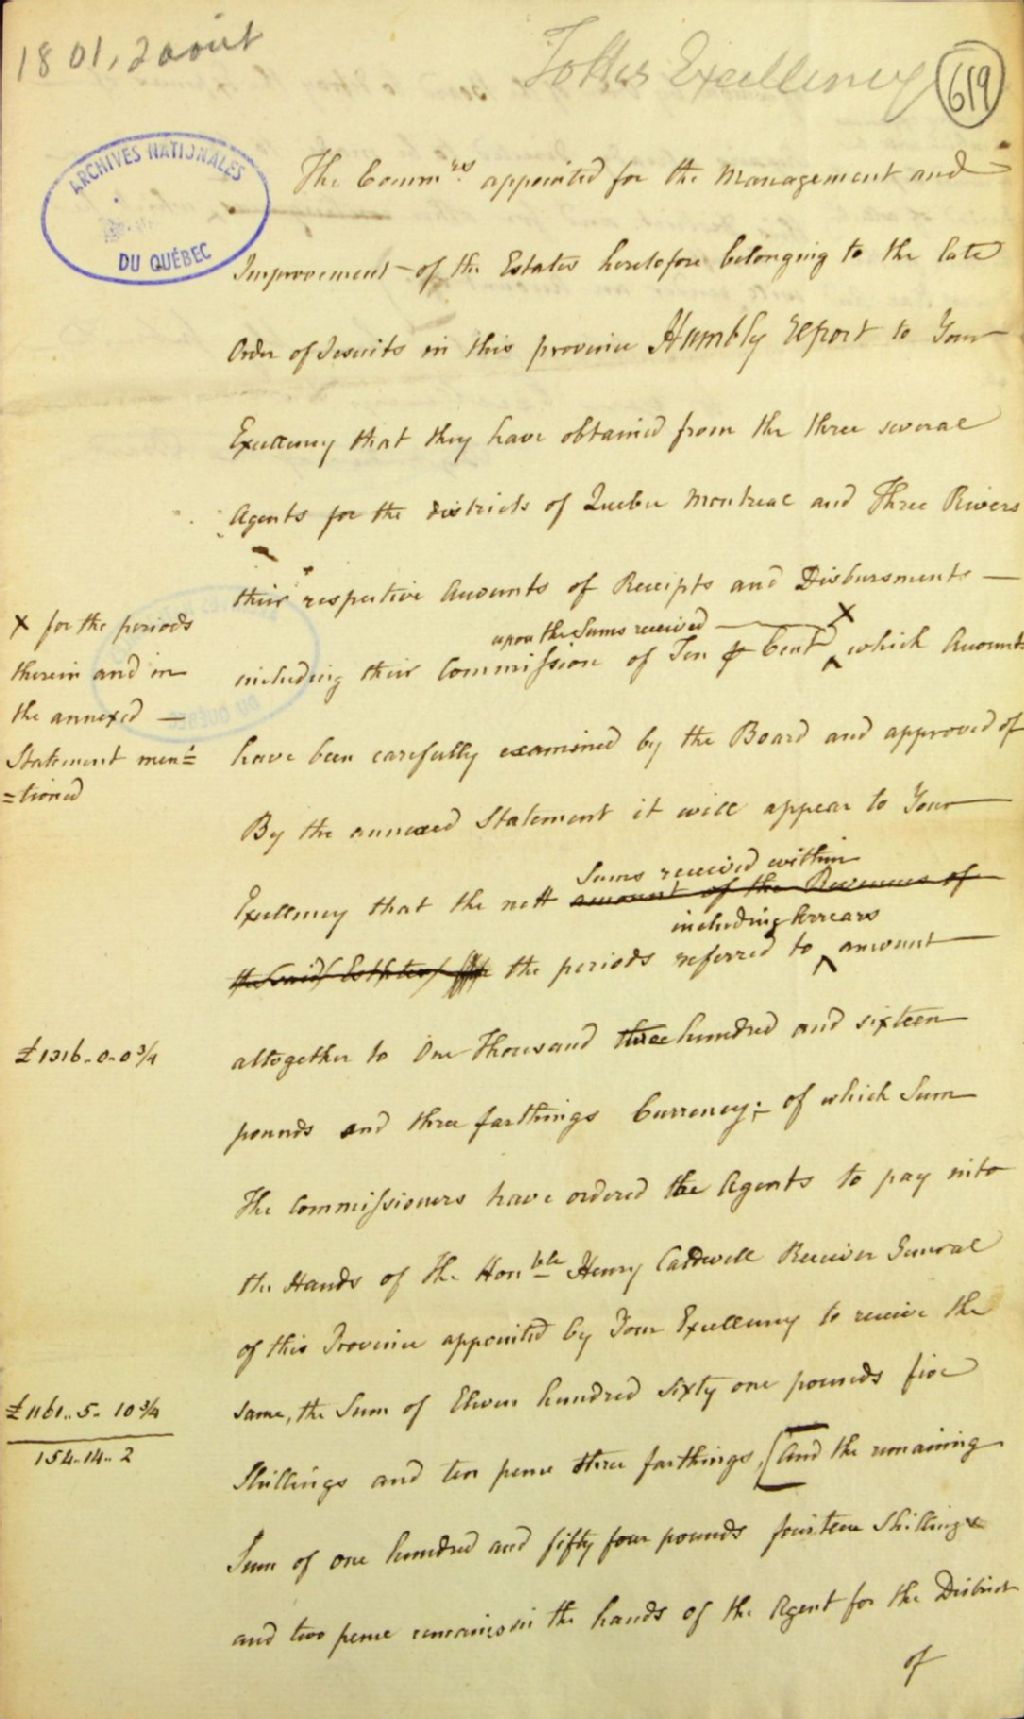 1801, 2 août
To His Excellency
619
ARCHIVES NATIONALES
DU QUÉBEC
The Commrs appointed for the Management and
Improvement of the Estates heretofore belonging to the late
Order of Jesuits in this province Humbly Report to Your
Excellency that they have obtained from the three several
Agents for the districts of Quebec Montreal and Three Rivers
their respective Accounts of Receipts and Disbursments —
upon the Sums received X
including their Commission of Ten P Cent ‸ which Accounts
X for the periods
therein and in
the annexed —
Statement men=
=tioned
have been carefully examined by the Board and approved of
By the annexed Statement it will appear to Your
Sums received within
Excellency that the nett amount of the Revenues of
including Arrears
the said Estates the periods referred to ‸ amount
£1316-0-0¾
altogether to One Thousand three hundred and sixteen
pounds and three farthings Currency; of which Sum
The Commissioners have ordered the Agents to pay into
the Hands of The Honble Henry Caldwell Receiver General
of this Province appointed by Your Excellency to receive the
same, the Sum of Eleven hundred sixty one pounds five
£1161..5-10¾
154-14..2
Shillings and ten pence three farthings, [and the remaining
Sum of one hundred and fifty four pounds fourteen Shillings
and two pence remains in the hands of the Agent for the District
of